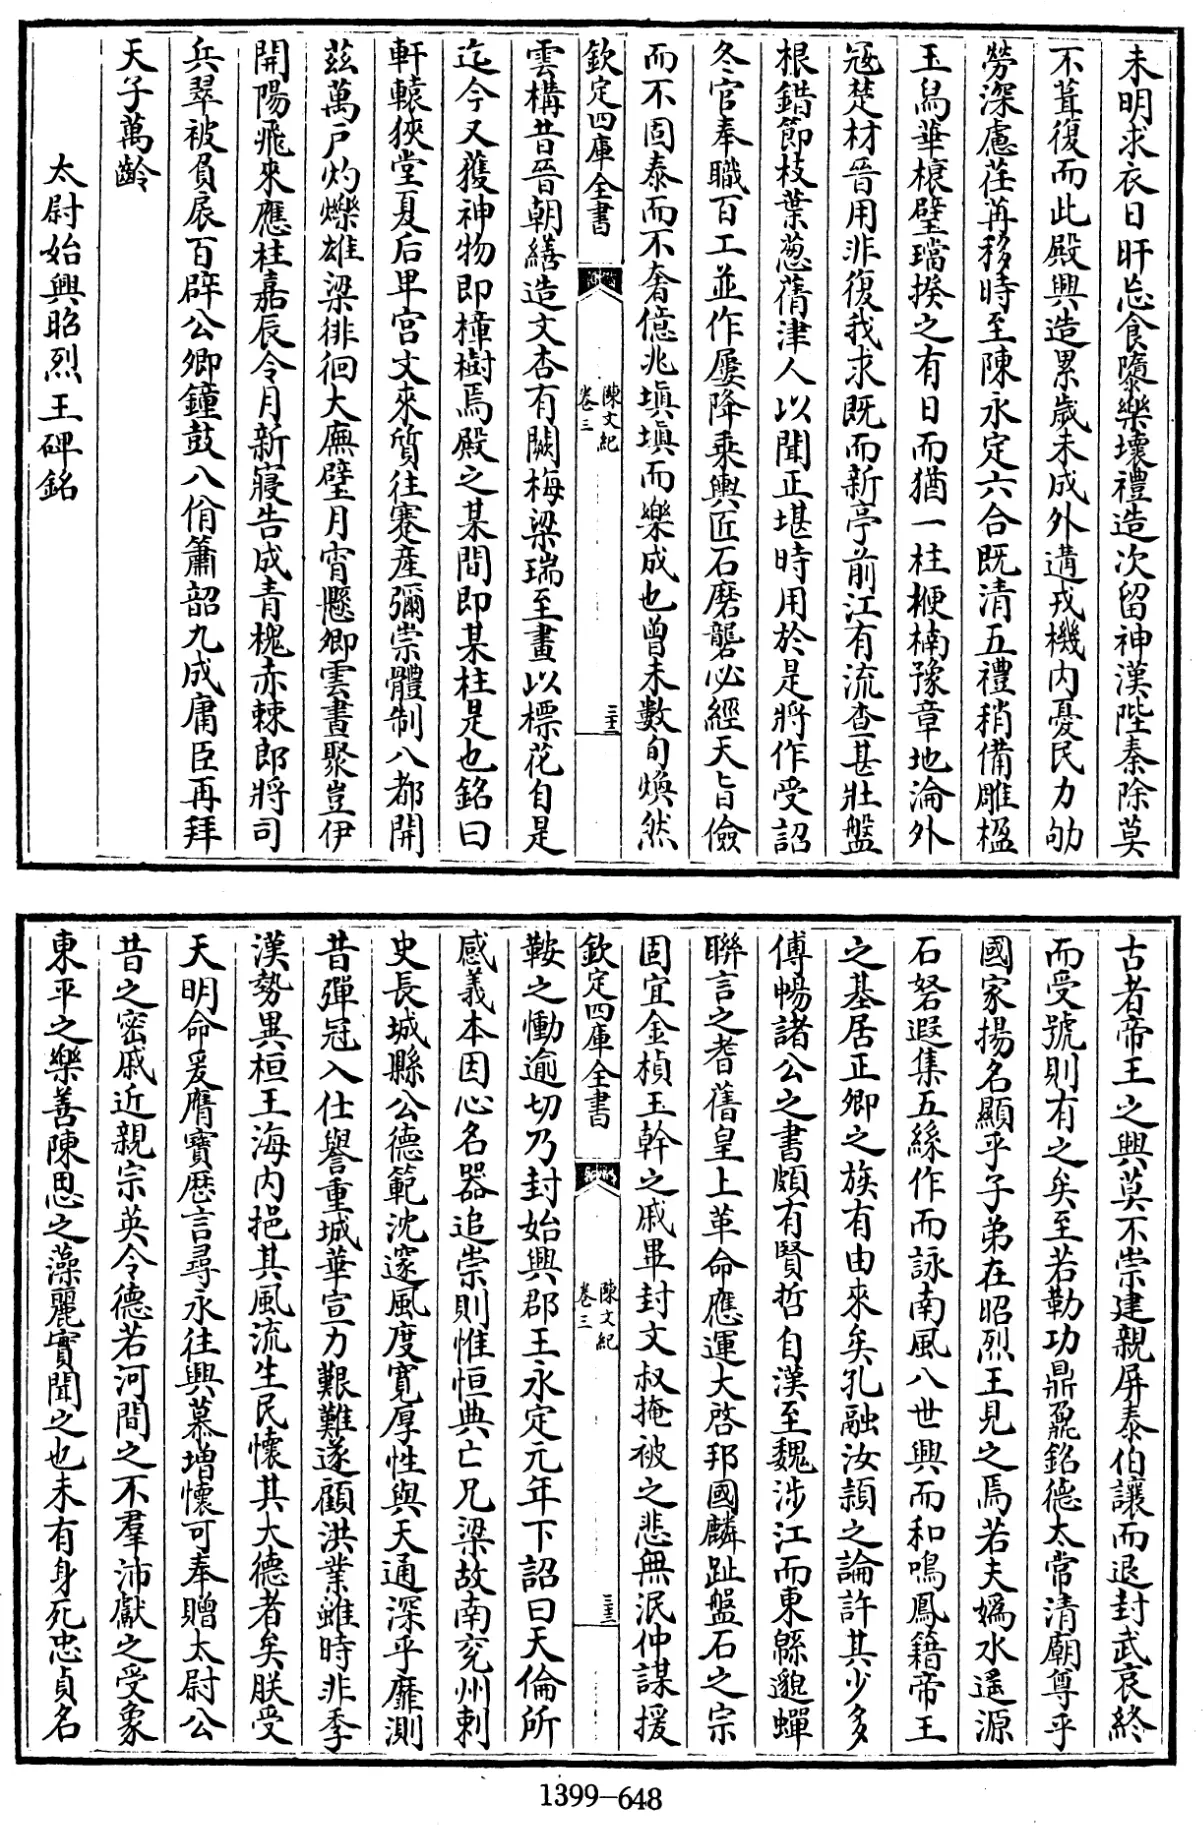 未明求衣日旰忘食隳樂壞禮造次留神漢陛秦除莫
不葺復而此殿興造累歲未成外遘戎機内憂民力劬
勞深慮荏苒移時至陳永定六合既清五禮稍備雕楹
玉舄華榱璧璫揆之有日而猶一柱楩楠豫章地淪外
冦楚材晉用非復我求既而新亭前江有流查甚壯盤
根錯節枝葉葱蒨津人以聞正堪時用於是將作受詔
冬官奉職百工並作屢降乗輿匠石磨礱必經天旨儉
而不固泰而不奢億兆塡塡而樂成也曾未數旬煥然
欽定四庫全書
陳文紀
卷三
三十二
雲構昔晉朝繕造文杏有闕梅梁瑞至畫以標花自是
迄今又獲神物即橦樹焉殿之某間即某柱是也銘曰
軒轅狹堂夏后卑宫文來質往蹇産彌崇體制八都開
茲萬戸灼爍雄梁徘徊大廡璧月宵懸卿雲晝聚豈伊
開陽飛來應柱嘉辰令月新寢告成青槐赤棘郎將司
兵翠被負扆百辟公卿鐘鼓八佾簫韶九成庸臣再拜
天子萬齡
太尉始興昭烈王碑銘
古者帝王之興莫不崇建親屏泰伯讓而退封武哀終
而受號則有之矣至若勒功鼎鼐銘德太常清廟尊乎
國家揚名顯乎子弟在昭烈王見之焉若夫嬀水遥源
石砮遐集五絲作而詠南風八世興而和鳴鳳籍帝王
之基居正卿之族有由來矣孔融汝潁之論許其少多
傅暢諸公之書頗有賢哲自漢至魏涉江而東緜邈蟬
聯言之耆舊皇上革命應運大啓邦國麟趾盤石之宗
固宜金楨玉幹之戚畢封文叔掩被之悲無泯仲謀援
欽定四庫全書
陳文紀
卷三
三十三
鞍之慟逾切乃封始興郡王永定元年下詔曰天倫所
感義本因心名器追崇則惟恒典亡兄梁故南兖州刺
史長城縣公德範沈邃風度寛厚性與天通深乎靡測
昔彈冠入仕譽重城華宣力艱難遂顧洪業雖時非季
漢勢異桓王海内挹其風流生民懷其大德者矣朕受
天明命爰膺寶歴言尋永往興慕增懷可奉贈太尉公
昔之密戚近親宗英令德若河間之不羣沛獻之受象
東平之樂善陳思之藻麗實聞之也未有身死忠貞名
1399—648